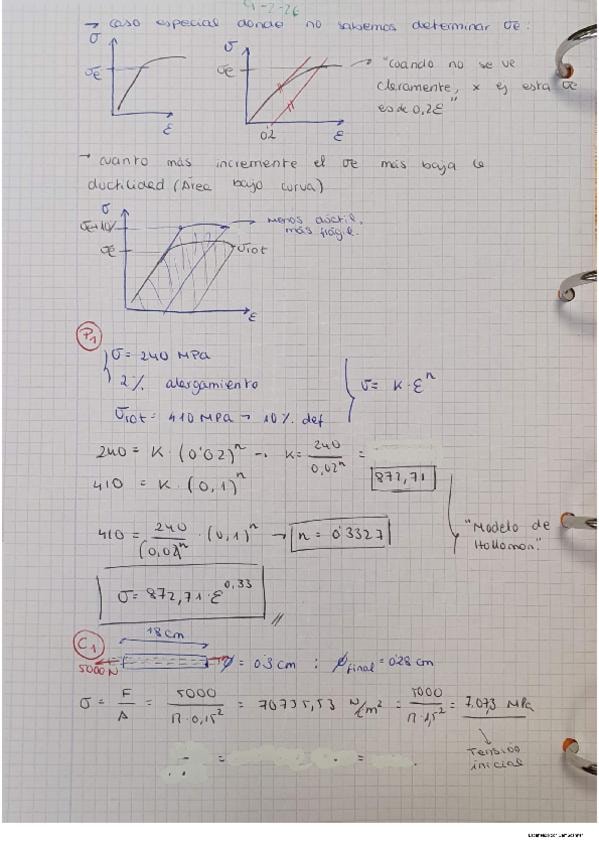 4-2-26
→ caso especial donde no sabemos determinar σe:
σ
σe
ε
σ
σe
0'2
ε
→ "cuando no se ve
claramente, x es esta σe
es de 0,2ε"
→ cuanto más incremente el σe más baja la
ductilidad (Área bajo curva)
σ
σe+10%
σe
→ menos dúctil,
más frágil.
σrot
ε
P1
σ = 240 MPa
2% alargamiento
σrot = 410 MPa → 10% def
σ = K·ε^n
240 = K·(0'02)^n → K = 240/0,02^n = 872,71
410 = K·(0,1)^n
410 = 240/(0,02)^n · (0,1)^n → n = 0'3327
"Modelo de
Hollomon"
σ = 872,71·ε^0,33
C1
18cm
5000N
ϕ = 0'3 cm ; ϕfinal = 0'28 cm
σ = F/A = 5000/π·0,15² = 70735,53 N/cm² = 5000/π·1,5² = 7.073 MPa
Tensión
inicial